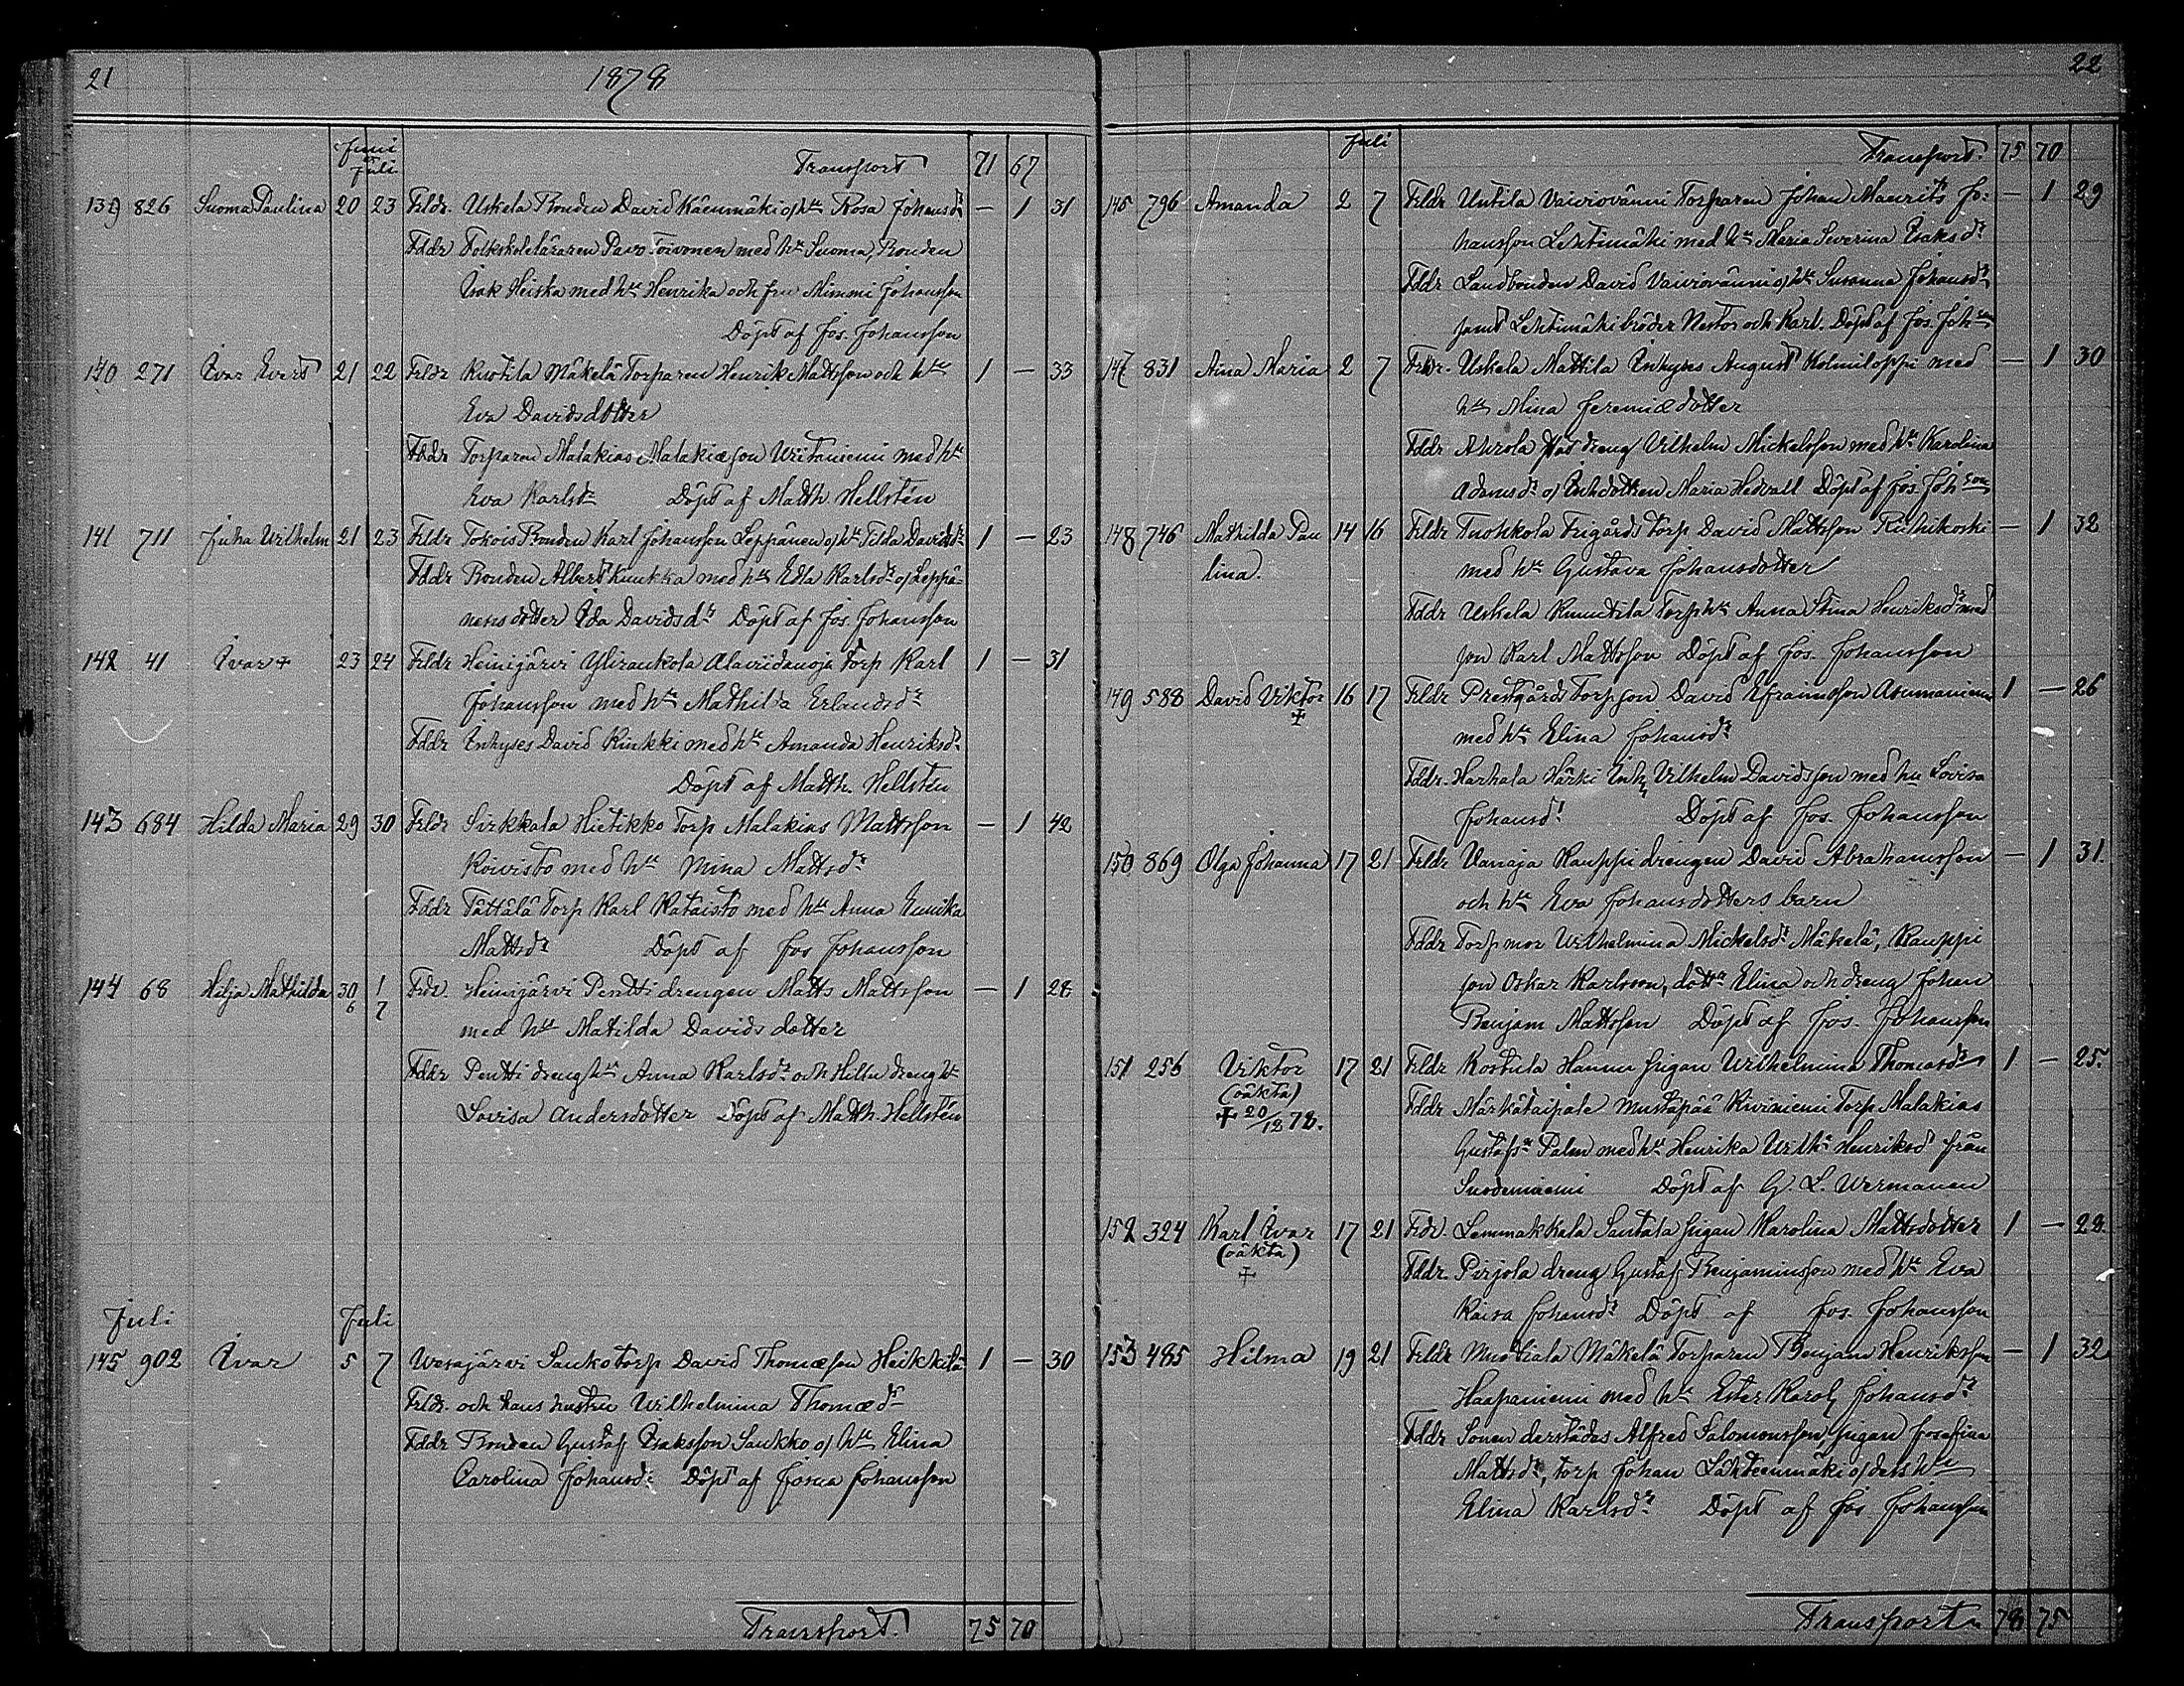 21 1878
Juni
Juli
Transport 71 67
139 826 Suoma Paulina 20 23 Frldr. Uskela Bonden David Käenmäki o/ hu Rosa Johansdr — 1 31
Fddr Folkskoleläraren Paavo Toivonen med hu Suoma, Bonden
Isak Heiska med hu Henrika och fru Mimmi Johansson
Döpt af Jos. Johansson
140 271 Ivar Evert 21 22 Frldr Kuotila Mäkelä Torparen Henrik Mattsson och hu 1 — 33
Eva Davidsdotter
Fddr Torparen Malakias Malakiæson Uritaniemi med hu
Eva Karlsdr Döpt af Matth. Hellstén
141 711 Juha Wilhelm 21 23 Frldr Tokois Bonden Karl Johansson Leppänen o/ hu Tilda Davidsdr 1 — 23
Fddr Bonden Albert Kuukka med hu Edla Karlsdr o/ Leppä-
nens dotter Ida Davidsdr Döpt af Jos. Johansson
142 41 Ivar + 23 24 Frldr Heinijärvi Ylirankola Alaviidanoja Torp Karl 1 — 31
Johansson med hu Mathilda Erlandsdr
Fddr Inhyses David Kinkki med hu Amanda Henriksdr
Döpt af Matth. Hellstén
143 684 Hilda Maria 29 30 Frldr Sirkkala Hietikko Torp Malakias Mattsson — 1 42
Koivisto med hu Mina Mattsdr
Fddr Tättälä Torp Karl Kataisto med hu Anna Eunika
Mattsdr Döpt af Jos Johansson
144 68 Hilja Mathilda 30/6 1/7 Frdr. Heinijärvi Pentti drengen Matts Mattsson — 1 28
med hu Matilda Davids dotter
Fddr Pentti dreng hu Anna Karlsdr och Hillu dreng hu
Lovisa Andersdotter Döpt af Matth. Hellstén
Juli Juli
145 902 Ivar 5 7 Wesajärvi Sauko Torp David Thomæson Heikkilä 1 — 30
Frldr. och hans hustru Wilhelmina Thomædr
Fddr Bonden Gustaf Isaksson Saukko o/ hu Elina
Carolina Johansdr Döpt af Josua Johansson
Transport. 75 70
22
Juli
Transport. 75 70
146 796 Amanda 2 7 Frldr Untila Vaivionänni Torparen Johan Maurits Jo- — 1 29
hansson Lehtimäki med hu Maria Severina Isaksdr
Fddr Landbonden David Vaivionänni o/ hu Susanna Johansdr
samt Lehtimäki bröder Nestor och Karl. Döpt af Jos. Johson
147 831 Aina Maria 2 7 Frldr. Uskela Mattila Inhyses August Kolmiloppi med — 1 30
hu Mina Jeremiædotter
Fddr Ahrola dreng Vilhelm Mickelsson med hu Karolina
Adamsdr o/ Inhdottren Maria Hedvall Döpt af Jos. Johson
148 746 Mathilda Pau 14 16 Frldr Tuohkola Frigårds Torp David Mattsson Riihikoski — 1 32
lina. med hu Gustava Johansdotter
Fddr Uskela Knuutila Torp hu Anna Stina Henriksdr med
son Karl Mattsson Döpt af Jos. Johansson
149 588 David Viktor 16 17 Frldr Prestgårds Torpson David Efraimsson Asumaniemi 1 — 26
+ med hu Elina Johansdr
Fddr. Harhala Härki Inh Vilhelm Davidsson med hu Lovisa
Johansdr Döpt af Jos. Johansson
150 869 Olga Johanna 17 21 Frldr Vanaja Kauppi drengen David Abrahamsson — 1 31.
och hu Eva Johansdotters barn
Fddr Torpmor Wilhelmina Mickelsdr Mäkelä, Kauppi
son Oskar Karlsson, dottr Elina och dreng Johan
Benjam Mattsson Döpt af Jos. Johansson
151 256 Viktor 17 21 Frldr Kostula Hannu pigan Wilhelmina Thomasdr 1 — 25.
(oäkta) Fddr Märkätaipale Mustapää Kiviniemi Torp Malakias
+ 20/12 78. Gustafsn Palm med hu Henrika Wilhna Henriksdr från
Suodeniemi Döpt af G. L. Wermanen
152 324 Karl Ivar 17 21 Frdr. Lemmakkala Santala pigan Karolina Mattsdotter 1 — 28.
(oäkta) Fddr Pirjola dreng Gustaf Benjaminsson med hu Eva
+ Kaisa Johansdr Döpt af Jos. Johansson
153 485 Hilma 19 21 Frldr Muotiala Mäkelä Torparen Benjam Henriksson — 1 32
Haapaniemi med hu Ester Karol Johansdr
Fddr Sonen derstädes Alfred Salomonsson, pigan Josefina
Mattsdr, Torp Johan Lähteenmäki o/ dess hu
Elina Karlsdr Döpt af Jos Johansson
Transport 78 75